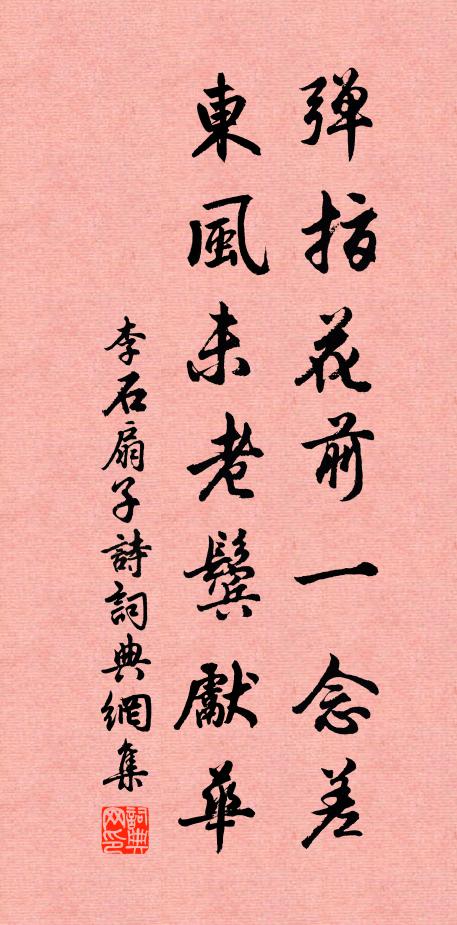 弹指花前一念差
東風未老鬓獻華
李石扇子詩詞典網集
詞典
网印